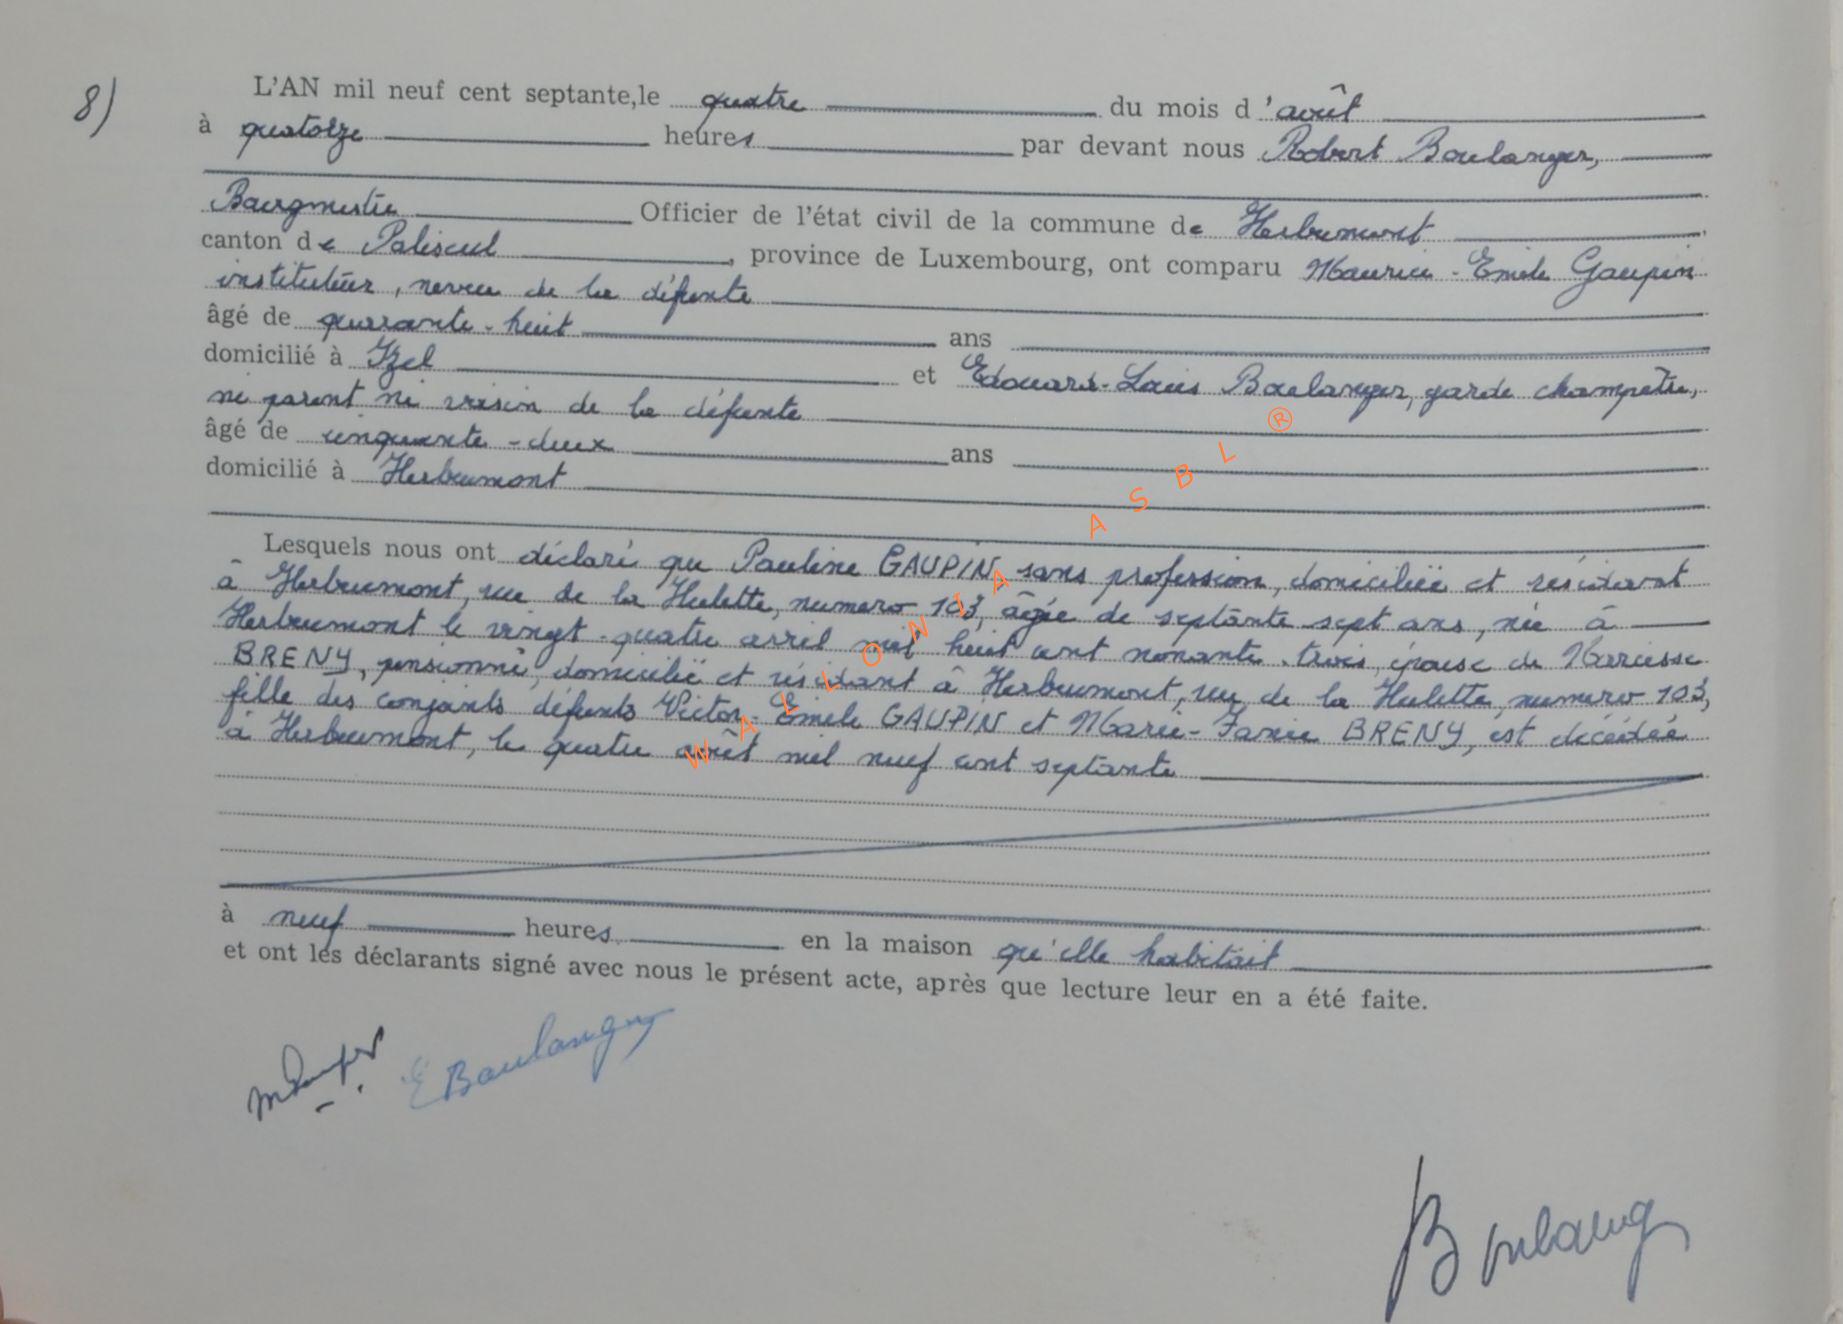 8)
L'AN mil neuf cent septante,le quatre du mois d'août
à quatorze heures par devant nous Robert Boulanger,
Bourgmestre Officier de l'état civil de la commune de Herbeumont
canton de Paliseul, province de Luxembourg, ont comparu Maurice-Emile Gaupin
instituteur, neveu de la défunte
âgé de quarante-huit ans
domicilié à Izel et Edouard-Louis Boulanger, garde champêtre,
ni parent ni voisin de la défunte
âgé de cinquante-deux ans
domicilié à Herbeumont
Lesquels nous ont déclaré que Pauline GAUPIN, sans profession, domiciliée et résidant
à Herbeumont, rue de la Hulette, numéro 103, âgée de septante sept ans, née à
Herbeumont le vingt-quatre avril mil huit cent nonante-trois, épouse de Narcisse
BRENY, pensionné, domicilié et résidant à Herbeumont, rue de la Hulette, numéro 103,
fille des conjoints défunts Victor-Emile GAUPIN et Marie- BRENY, est décédée
à Herbeumont, le quatre août mil neuf cent septante
à neuf heures en la maison qu'elle habitait
et ont les déclarants signé avec nous le présent acte, après que lecture leur en a été faite.
E Boulanger
Boulang
WALLONIA ASBL ®